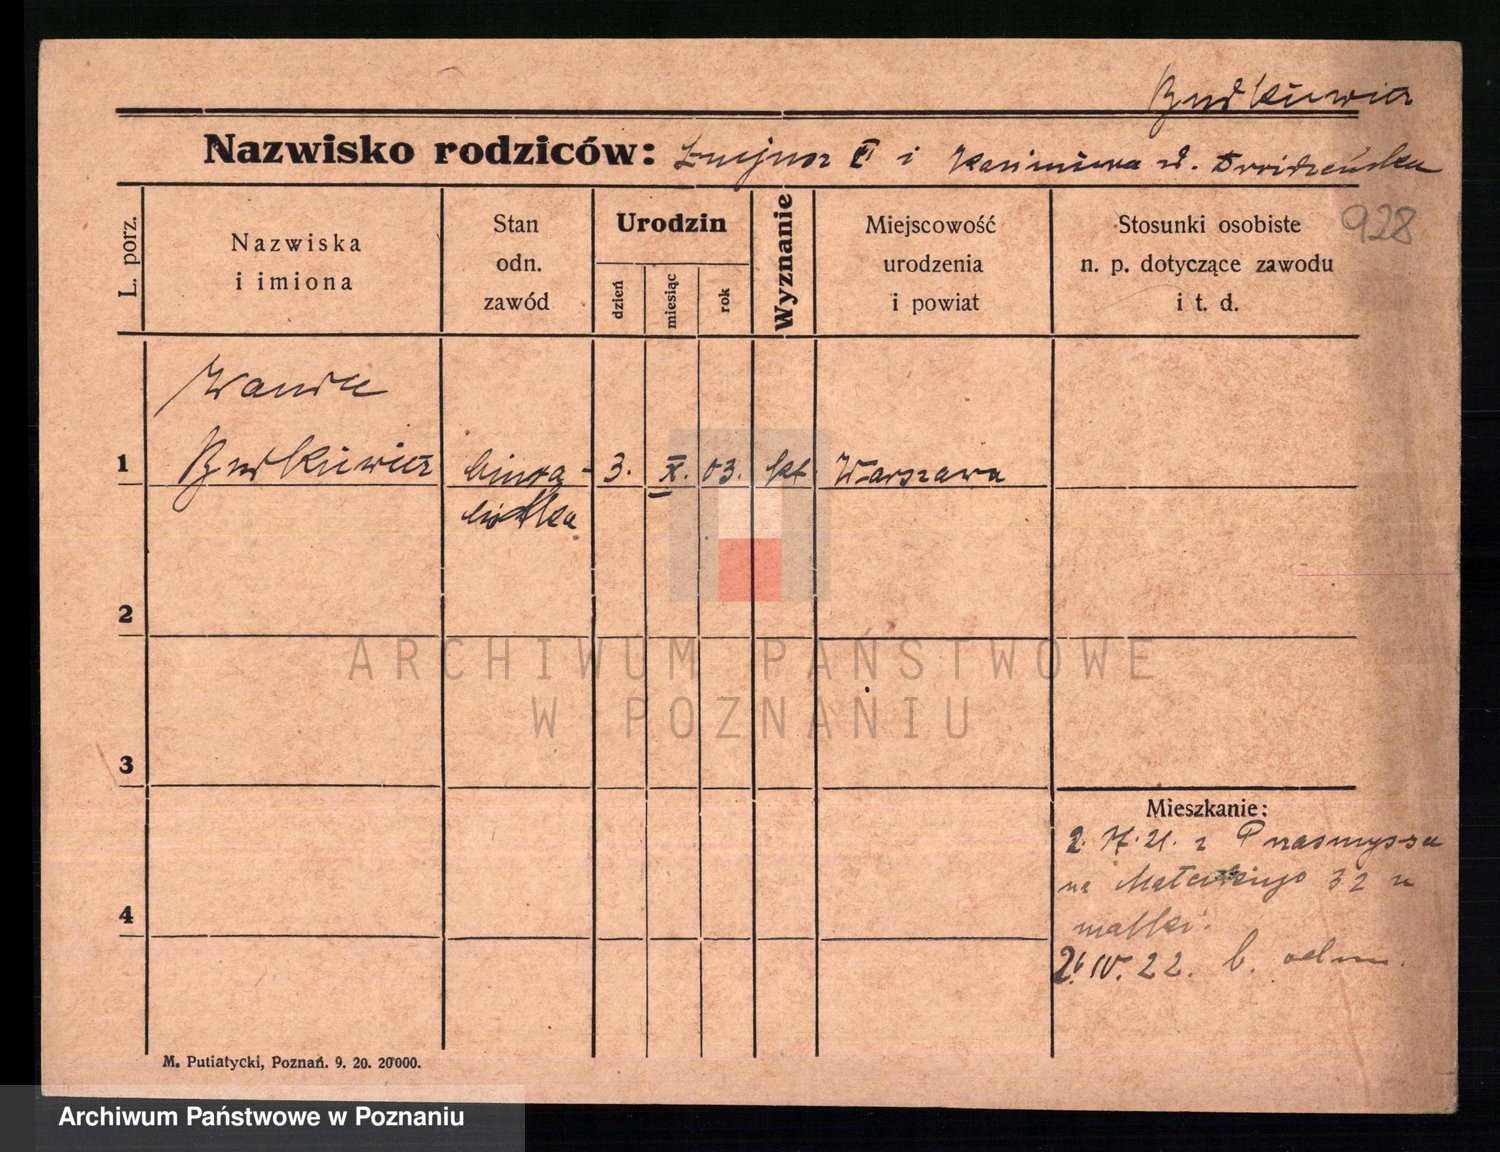 Budkiewicz
Nazwisko rodziców: Lucjusz i Kazimiera
928
L. porz.
Nazwiska
i imiona
Stan
odn.
zawód
Urodzin
dzień
miesiąc
rok
Wyznanie
Miejscowość
urodzenia
i powiat
Stosunki osobiste
n. p. dotyczące zawodu
i t. d.
Wanda
1 Budkiewicz biura- 3. X. 03. kt. Warszawa
listka
2
3
4
Mieszkanie:
2. 21. z Przasnysza
na Matejkiego 32 u
matki.
26. IV. 22. b. odm.
M. Putiatycki, Poznań. 9. 20. 20000.
ARCHIWUM PAŃSTWOWE
W POZNANIU
Archiwum Państwowe w Poznaniu